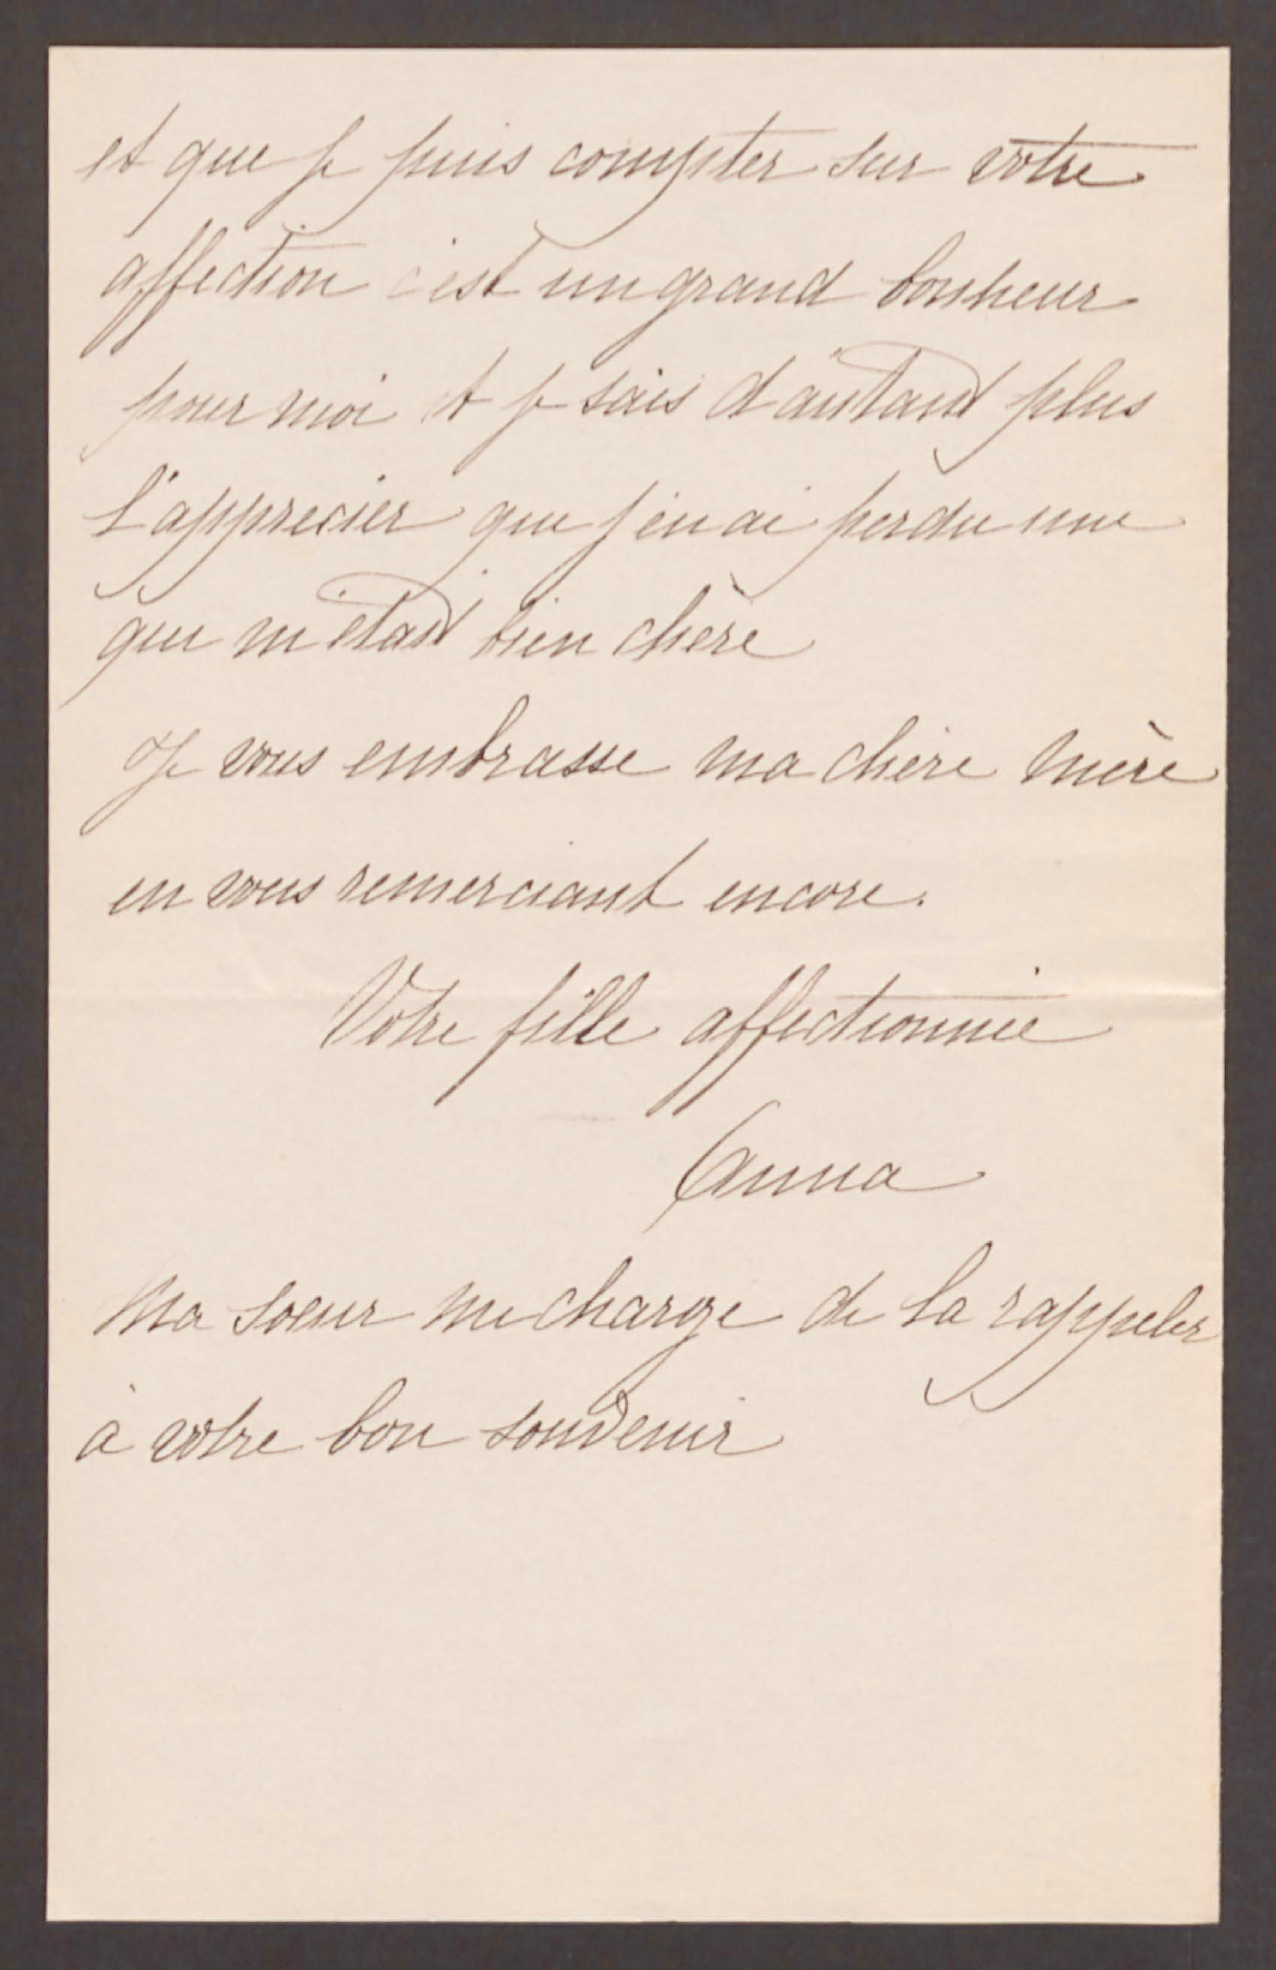 et que je puis compter sur votre
affection c'est un grand bonheur
pour moi et je sais d'autant plus
l'apprecier que j'en ai perdu une
qui m'était bien chère
Je vous embrasse ma chère mère
en vous remerciant encore.
Votre fille affectionnée
Anna
Ma soeur me charge de la rappeler
à votre bon souvenir